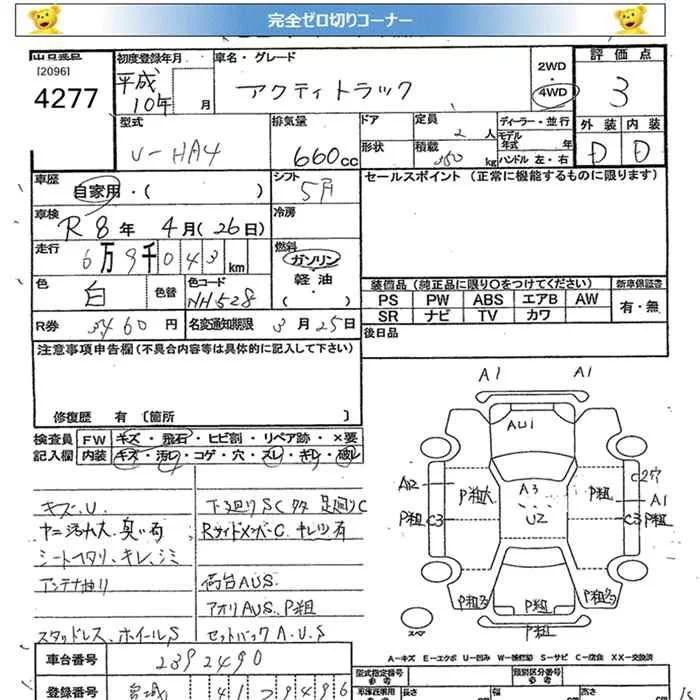 完全ゼロ切りコーナー
[2096]
4277
初度登録年月
平成
10年 月
車名・グレード
アクティトラック
2WD
・
4WD
評価点
3
外装 内装
D D
型式
V-HA4
排気量
660cc
ドア
形状
定員 2人
積載 350kg
ディーラー・並行
モデル年式 年
ハンドル 左・右
車歴
自家用・( )
シフト
5F
セールスポイント (正常に機能するものに限ります)
車検
R8年 4月(26日)
冷房
走行
6万9千043km
燃料
ガソリン
軽油
・( )
色
白
色替
色コード
NH528
装備品 (純正品に限り〇をつけてください)
新車保証書
PS PW ABS エアB AW
有・無
SR ナビ TV カワ
R券 3460円
名変通知期限 3月25日
後日品
注意事項申告欄(不具合内容等は具体的に記入して下さい)
修復歴 有 〔箇所 〕
検査員
記入欄
FW キズ・飛石・ヒビ割・リペア跡・×要
内装 キズ・汚レ・コゲ・穴・スレ・キレ・破レ
キズ.U.
ヤニ汚れ大.臭い有
シートヘタリ、キレ、シミ
アンテナ抽り
スタッドレス、ホイールS
下廻りSC タタ 足廻りC
RサイドメンバーC.キレツ有
荷台AUS.
アオリAUS、P粗
セットバックA.U.S
A1 A1
AU1
A12 P粗大 A3 P粗 C2穴
A1
P粗 C3 U2 C3 P粗
P粗多 P粗 P粗多
P粗
スペア
A-キズ E-エクボ U-凹み W-補修跡 S-サビ C-腐食 XX-交換済
車台番号 2392490
型式指定番号
参考
類別区分番号
参考
登録番号 宮城 41 す 9496
長さ 幅 高さ